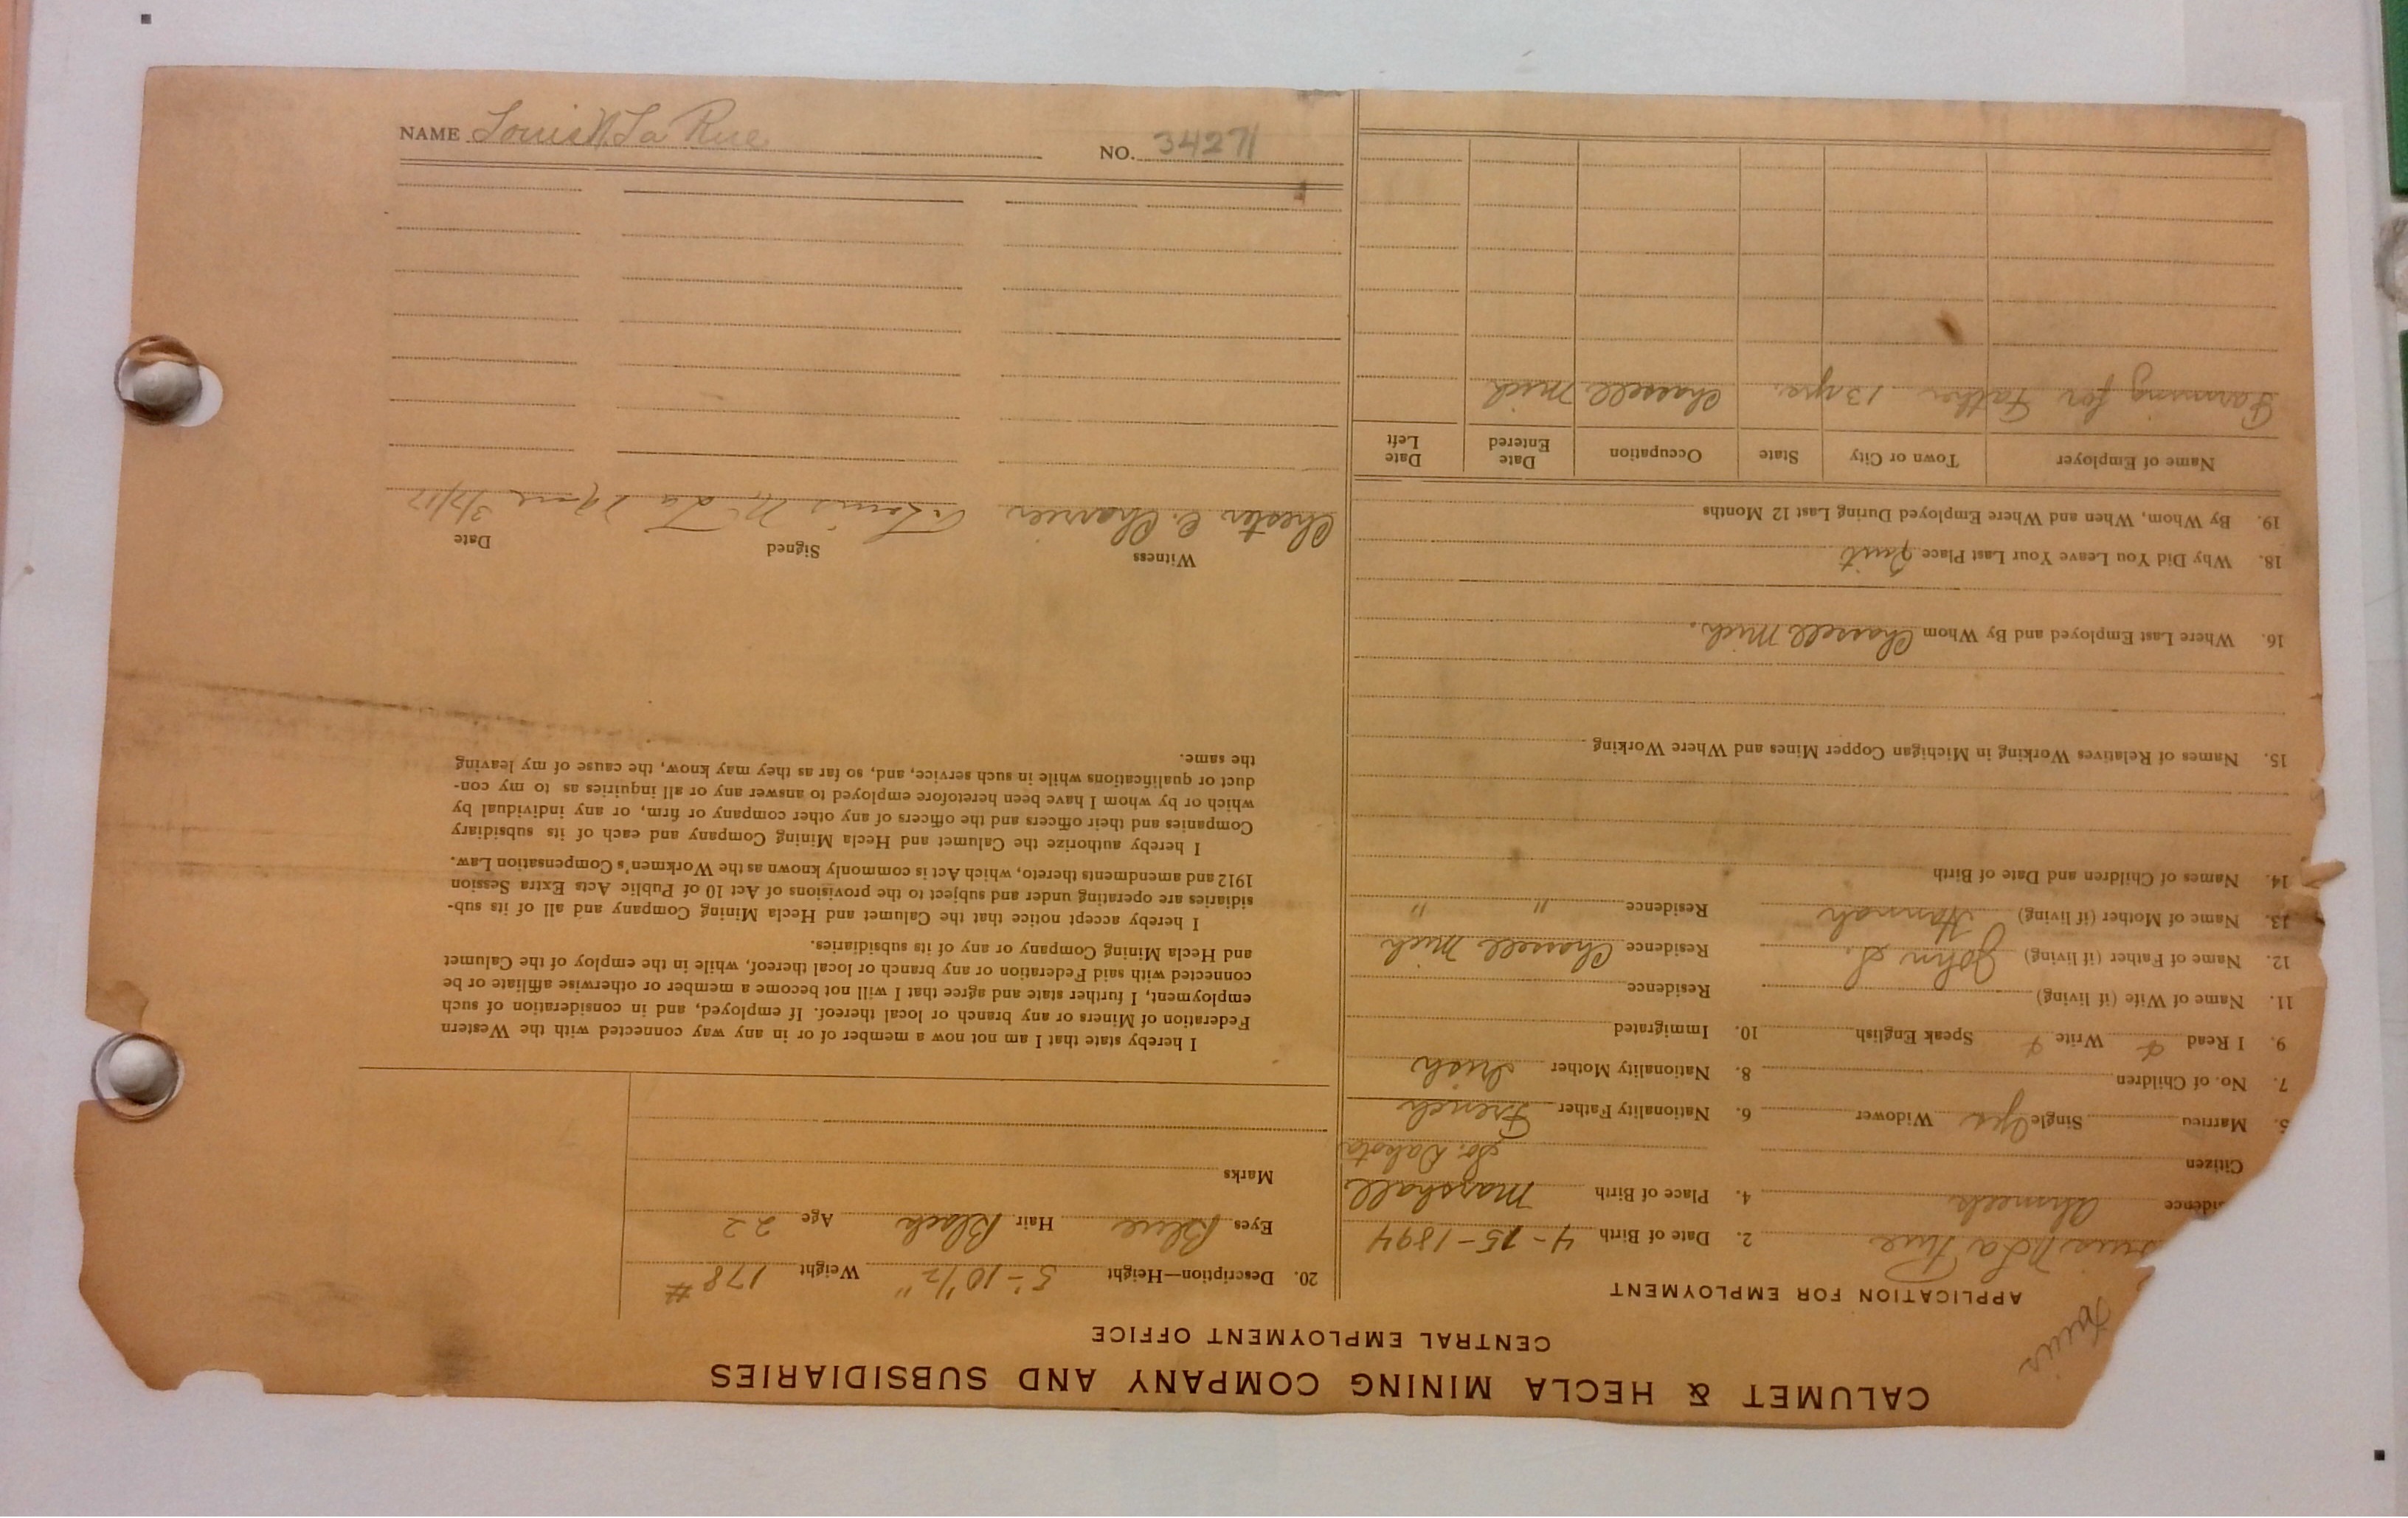 CALUMET & HECLA MINING COMPANY AND SUBSIDIARIES
CENTRAL EMPLOYMENT OFFICE
APPLICATION FOR EMPLOYMENT
Louis
ouis N La Rue
2. Date of Birth 4-15-1894
idence Ahmeek
4. Place of Birth Marshall
So. Dakota
Citizen
5. Married Single Yes Widower
6. Nationality Father French
7. No. of Children
8. Nationality Mother Irish
9. I Read Write Speak English
10. Immigrated
11. Name of Wife (if living) Residence
12. Name of Father (if living) John S. Residence Chassell Mich
13. Name of Mother (if living) Hannah Residence " "
14. Names of Children and Date of Birth
15. Names of Relatives Working in Michigan Copper Mines and Where Working
16. Where Last Employed and By Whom Chassell Mich.
18. Why Did You Leave Your Last Place Quit
19. By Whom, When and Where Employed During Last 12 Months
Name of Employer Town or City State Occupation Date Entered Date Left
Farming for Father 13 yrs. Chassell Mich
20. Description—Height 5-10 1/2" Weight 178 #
Eyes Blue Hair Black Age 22
Marks
I hereby state that I am not now a member of or in any way connected with the Western
Federation of Miners or any branch or local thereof. If employed, and in consideration of such
employment, I further state and agree that I will not become a member or otherwise affiliate or be
connected with said Federation or any branch or local thereof, while in the employ of the Calumet
and Hecla Mining Company or any of its subsidiaries.
I hereby accept notice that the Calumet and Hecla Mining Company and all of its sub-
sidiaries are operating under and subject to the provisions of Act 10 of Public Acts Extra Session
1912 and amendments thereto, which Act is commonly known as the Workmen's Compensation Law.
I hereby authorize the Calumet and Hecla Mining Company and each of its subsidiary
Companies and their officers and the officers of any other company or firm, or any individual by
which or by whom I have been heretofore employed to answer any or all inquiries as to my con-
duct or qualifications while in such service, and, so far as they may know, the cause of my leaving
the same.
Witness Signed Date
Chester C. Louis N. La Rue 3/2/17
NAME Louis N. La Rue NO. 34271